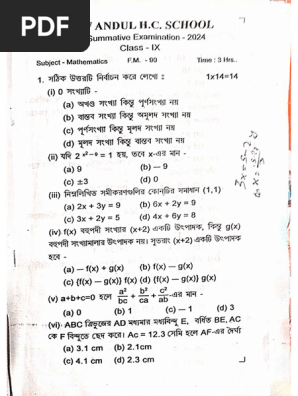 PDF
ANDUL H.C. SCHOOL
Summative Examination - 2024
Class - IX
Subject - Mathematics F.M. - 90 Time : 3 Hrs.
1. সঠিক উত্তরটি নির্বাচন করে লেখো : 1x14=14
(i) 0 সংখ্যাটি -
(a) অখণ্ড সংখ্যা কিন্তু পূর্ণসংখ্যা নয়
(b) বাস্তব সংখ্যা কিন্তু অমূলদ সংখ্যা নয়
(c) পূর্ণসংখ্যা কিন্তু মূলদ সংখ্যা নয়
(d) মূলদ সংখ্যা কিন্তু বাস্তব সংখ্যা নয়
(ii) যদি = 1 হয়, তবে x-এর মান -
(a) 9 (b) – 9
(c) ±3 (d) 0
(iii) নিম্নলিখিত সমীকরণগুলির কোনটির সমাধান (1,1)
(a) 2x + 3y = 9 (b) 6x + 2y = 9
(c) 3x + 2y = 5 (d) 4x + 6y = 8
(iv) f(x) বহুপদী সংখ্যার (x+2) একটি উৎপাদক, কিন্তু g(x)
বহুপদী সংখ্যামালার উৎপাদক নয়। সুতরাং (x+2) একটি উৎপাদক
হবে -
(a) – f(x) + g(x) (b) f(x) – g(x)
(c) {f(x) – g(x)} f(x) (d) {f(x) – g(x)} g(x)
(v) a+b+c=0 হলে a²/bc + b²/ca + c²/ab -এর মান -
(a) 0 (b) 1 (c) – 1 (d) 3
(vi) ABC ত্রিভুজের AD মধ্যমার মধ্যবিন্দু E, বর্ধিত BE, AC
কে F বিন্দুতে ছেদ করে। Ac = 12.3 সেমি হলে AF-এর দৈর্ঘ্য
(a) 3.1 cm (b) 2.1cm
(c) 4.1 cm (d) 2.3 cm